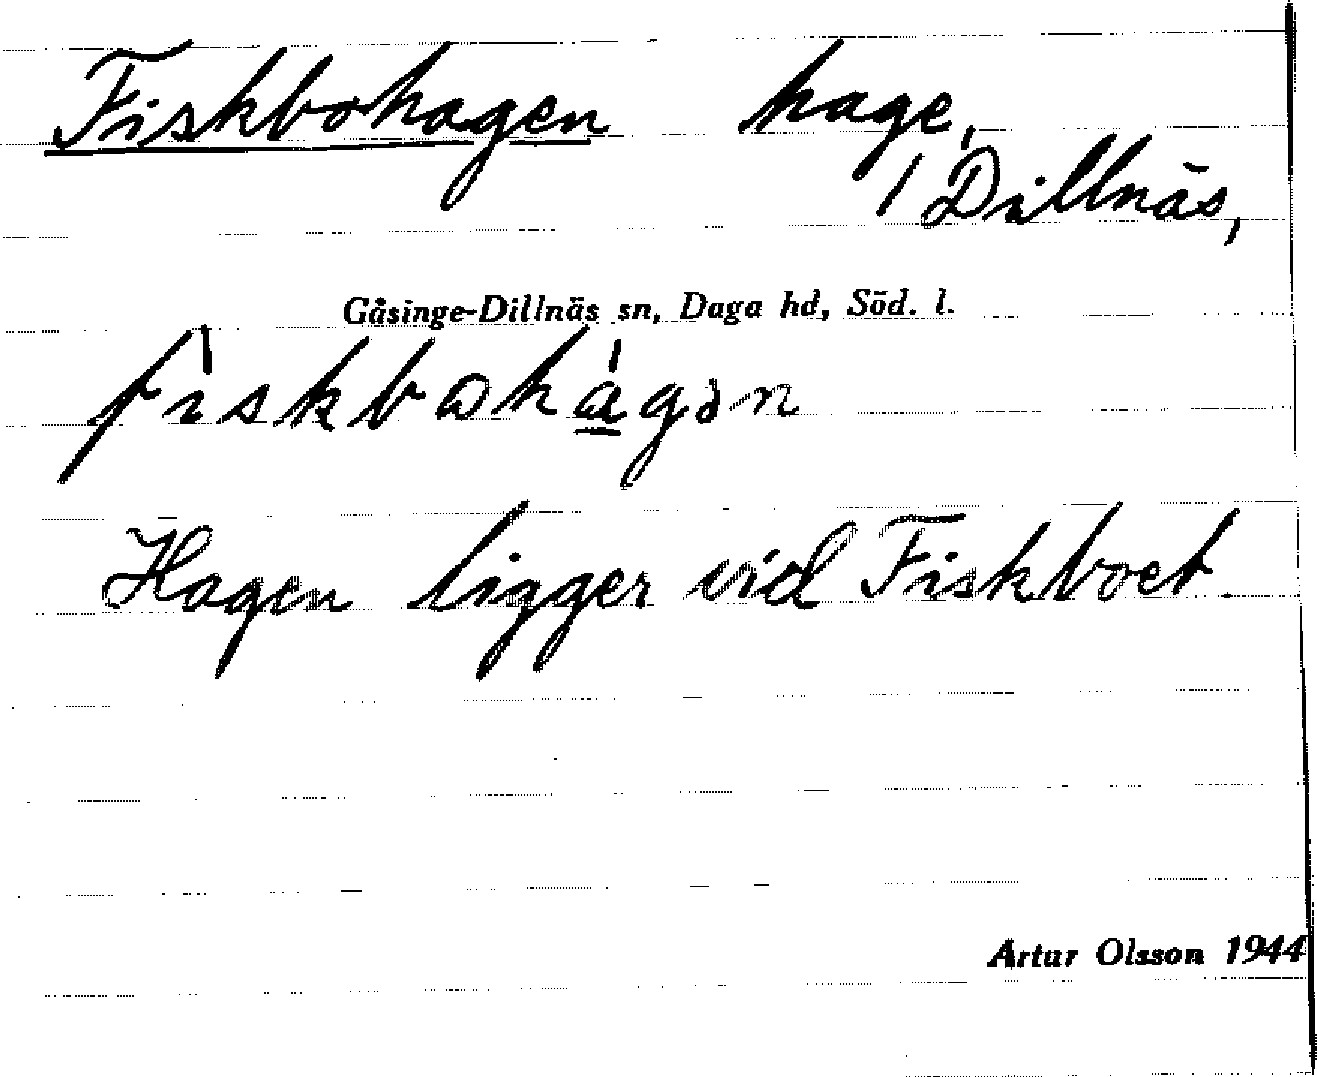 Fiskbohagen hage,
1 Dillnäs,
Gåsinge-Dillnäs sn, Daga hd, Söd. l.
Hagen ligger vid Fiskboet.
Artur Olsson 1944